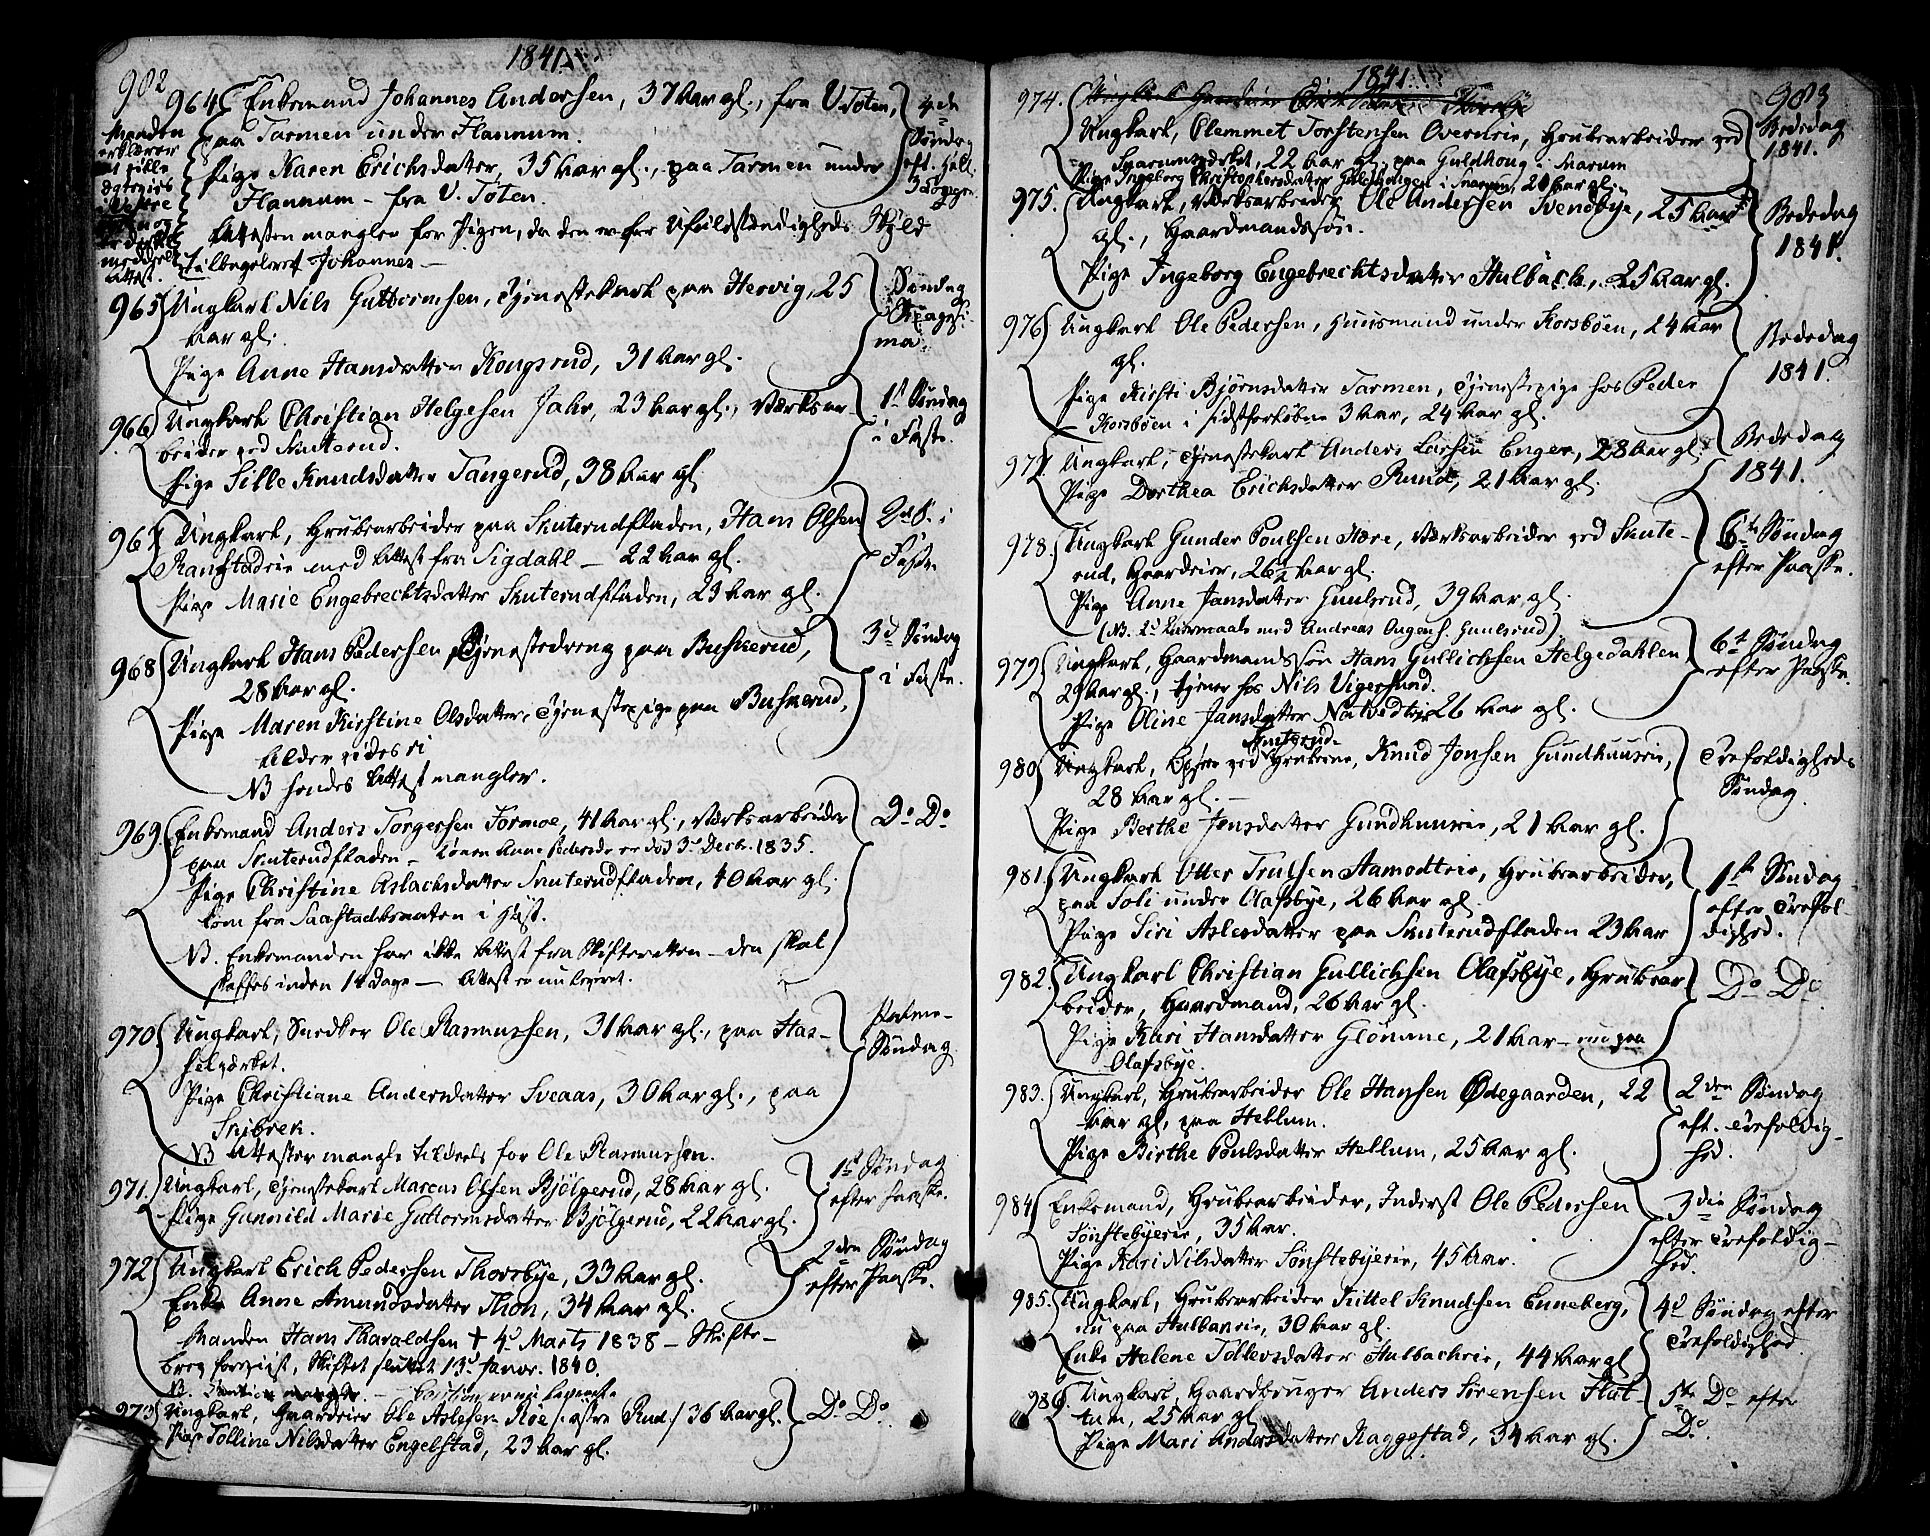 982
1841.
964 Enkemand Johannes Andersen, 37 Aar gl., fra V. Toten,
paa Tarmen under Flannum.
Pige Karen Erichsdatter, 35 Aar gl., paa Tarmen under
Flannum – fra V. Toten.
Attesten mangler for Pigen, da den er for Ufuldstændigheds Skyld
tilbageleveret Johannes –
4de
Søndag
eft. Hell.
3 Konger.
Manden
erklærer
965 Ungkarl Nils Guttormsen, Tjenestekarl paa Hervig, 25
Aar gl.
Pige Anne Hansdatter Kongsrud, 31 Aar gl.
Søndag
Sexagesi-
ma
966 Ungkarl Christian Helgesen Jahr, 23 Aar gl., Værksar-
beider ved Skuterud.
Pige Sille Knudsdatter Tangerud, 38 Aar gl.
1st Søndag
i Faste.
967 Ungkarl, Grubearbeider paa Skuterudfladen, Hans Olsen
Ramstadeie med Attest fra Sigdahl – 22 Aar gl.
Pige Marie Engebrechtsdatter Skuterudfladen, 23 Aar gl.
2d S. i
Faste.
968 Ungkarl Hans Pedersen, Tjenestedreng paa Buskerud,
28 Aar gl.
Pige Maren Kirstine Olsdatter, Tjenestepige paa Buskerud,
Alder vides ei
NB hendes Attest mangler.
3d Søndag
i Faste.
969 Enkemand Anders Torgersen Formoe, 41 Aar gl., Værksarbeider
paa Skuterudfladen – Konen Anne Pedersdr er død 3d Decbr. 1835.
Pige Christine Aslachsdatter Skuterudfladen, 40 Aar gl.
kom fra Saastadbraaten i Høst.
NB. Enkemanden har ikke Attest fra Skifteretten – den skal
skaffes inden 14 Dage – Attest er nu leveret.
Do Do
970 Ungkarl, Snedker Ole Rasmussen, 31 Aar gl., paa Has-
selværket.
Pige Christiane Andersdatter Sveaas, 30 Aar gl., paa
Snibrek.
NB Attester mangle tildeels for Ole Rasmussen.
Palme-
Søndag
971 Ungkarl, Tjenestekarl Marcus Olsen Bjølgerud, 28 Aar gl.
Pige Gunnild Marie Guttormsdatter Bjølgerud, 22 Aar gl.
1st Søndag
efter Paaske.
972 Ungkarl Erich Pedersen Thorsbye, 33 Aar gl.
Enke Anne Amundsdatter Thon, 34 Aar gl.
Manden Hans Tharaldsen † 4d Marts 1838 – Skifte-
brev foreviist, Skiftet sluttet 13d Janvr. 1840.
NB. Caution mangler. – Caution er nu leveret
2den Søndag
efter Paaske.
973 Ungkarl, Gaardeier Ole Aslesen Røe /: østre Rud :/ 36 Aar gl.
Pige Tolline Nilsdatter Engelstad, 23 Aar gl.
Do Do
1841.
983
974.
Ungkarl, Clemmet Torstensen Overneie, Grubearbeider ved
Snarumsværket, 22 Aar gl. paa Guldhoug i Snarum
Pige Ingeborg Christophersdatter Guldhougen i Snarum, 21 Aar gl.
Bededag
1841.
975. Ungkarl, Værksarbeider Ole Andersen Svendbye, 25 Aar
gl., Gaardmandssøn.
Pige Ingeborg Engebrechtsdatter Hulbach, 25 Aar gl.
Bededag
1841.
976 Ungkarl Ole Pedersen, Huusmand under Korsbøen, 24 Aar
gl.
Pige Kirsti Bjørnsdatter Tarmen, Tjenestepige hos Peder
Korsbøen i sidstforløbne 3 Aar, 24 Aar gl.
Bededag
1841.
977. Ungkarl, Tjenestekarl Anders Larsen Enger, 28 Aar gl.
Pige Dorthea Erichsdatter Rund, 21 Aar gl.
Bededag
1841.
978. Ungkarl Gunder Poulsen Hære, Værksarbeider ved Skute-
rud, Gaardeier, 26½ Aar gl.
Pige Anne Jansdatter Gunlsrud, 39 Aar gl.
(NB. 2d Leiermaal med Andreas Gunlsrud)
6te Søndag
efter Paaske.
979 Ungkarl, Gaardmandssøn Hans Gullichsen Helgedahlen
29 Aar gl., tjener hos Nils Vigersund.
Pige Oline Jansdatter Natvedteie 26 Aar gl.
6te Søndag
efter Paaske.
980 Ungkarl, Opseer ved Skuterud- Gruberne, Knud Jonsen Gundhuusein,
28 Aar gl. –
Pige Berthe Jonsdatter Gundhuuseie, 21 Aar gl.
Trefoldigheds
Søndag.
981. Ungkarl Otter Trulsen Aamodteie, Grubearbeider,
paa Soli under Olafsbye, 26 Aar gl.
Pige Siri Aslesdatter paa Skuterudfladen 23 Aar
1ste Søndag
efter Trefol-
dighed.
982. Ungkarl Christian Gullichsen Olafsbye, Grubear-
beider, Gaardmand, 26 Aar gl.
Pige Kari Hansdatter Glømme, 21 Aar – nu paa
Olafsbye.
Do Do
983. Ungkarl, Grubearbeider Ole Hansen Ødegaarden, 22
Aar gl., paa Hellum.
Pige Birthe Poulsdatter Hellum, 25 Aar gl.
2den Søndag
eft. Trefoldig-
hed.
984 Enkemand, Grubearbeider, Inderst Ole Pedersen
Sønstebyeeie, 35 Aar.
Pige Kari Nilsdatter Sønstebyeeie, 45 Aar.
3die Søndag
efter Trefoldig-
hed.
985. Ungkarl, Grubearbeider Kittel Knudsen Enneberg,
nu paa Hulbakeie, 30 Aar gl.
Enke Helene Tollevsdatter Hulbacheie, 44 Aar gl
4d Søndag efter
Trefoldighed.
986. Ungkarl, Gaardbruger Anders Sørensen Flat-
tum, 25 Aar gl
Pige Mari Andersdatter Kaggestad, 34 Aar gl.
5te Do efter
Do.